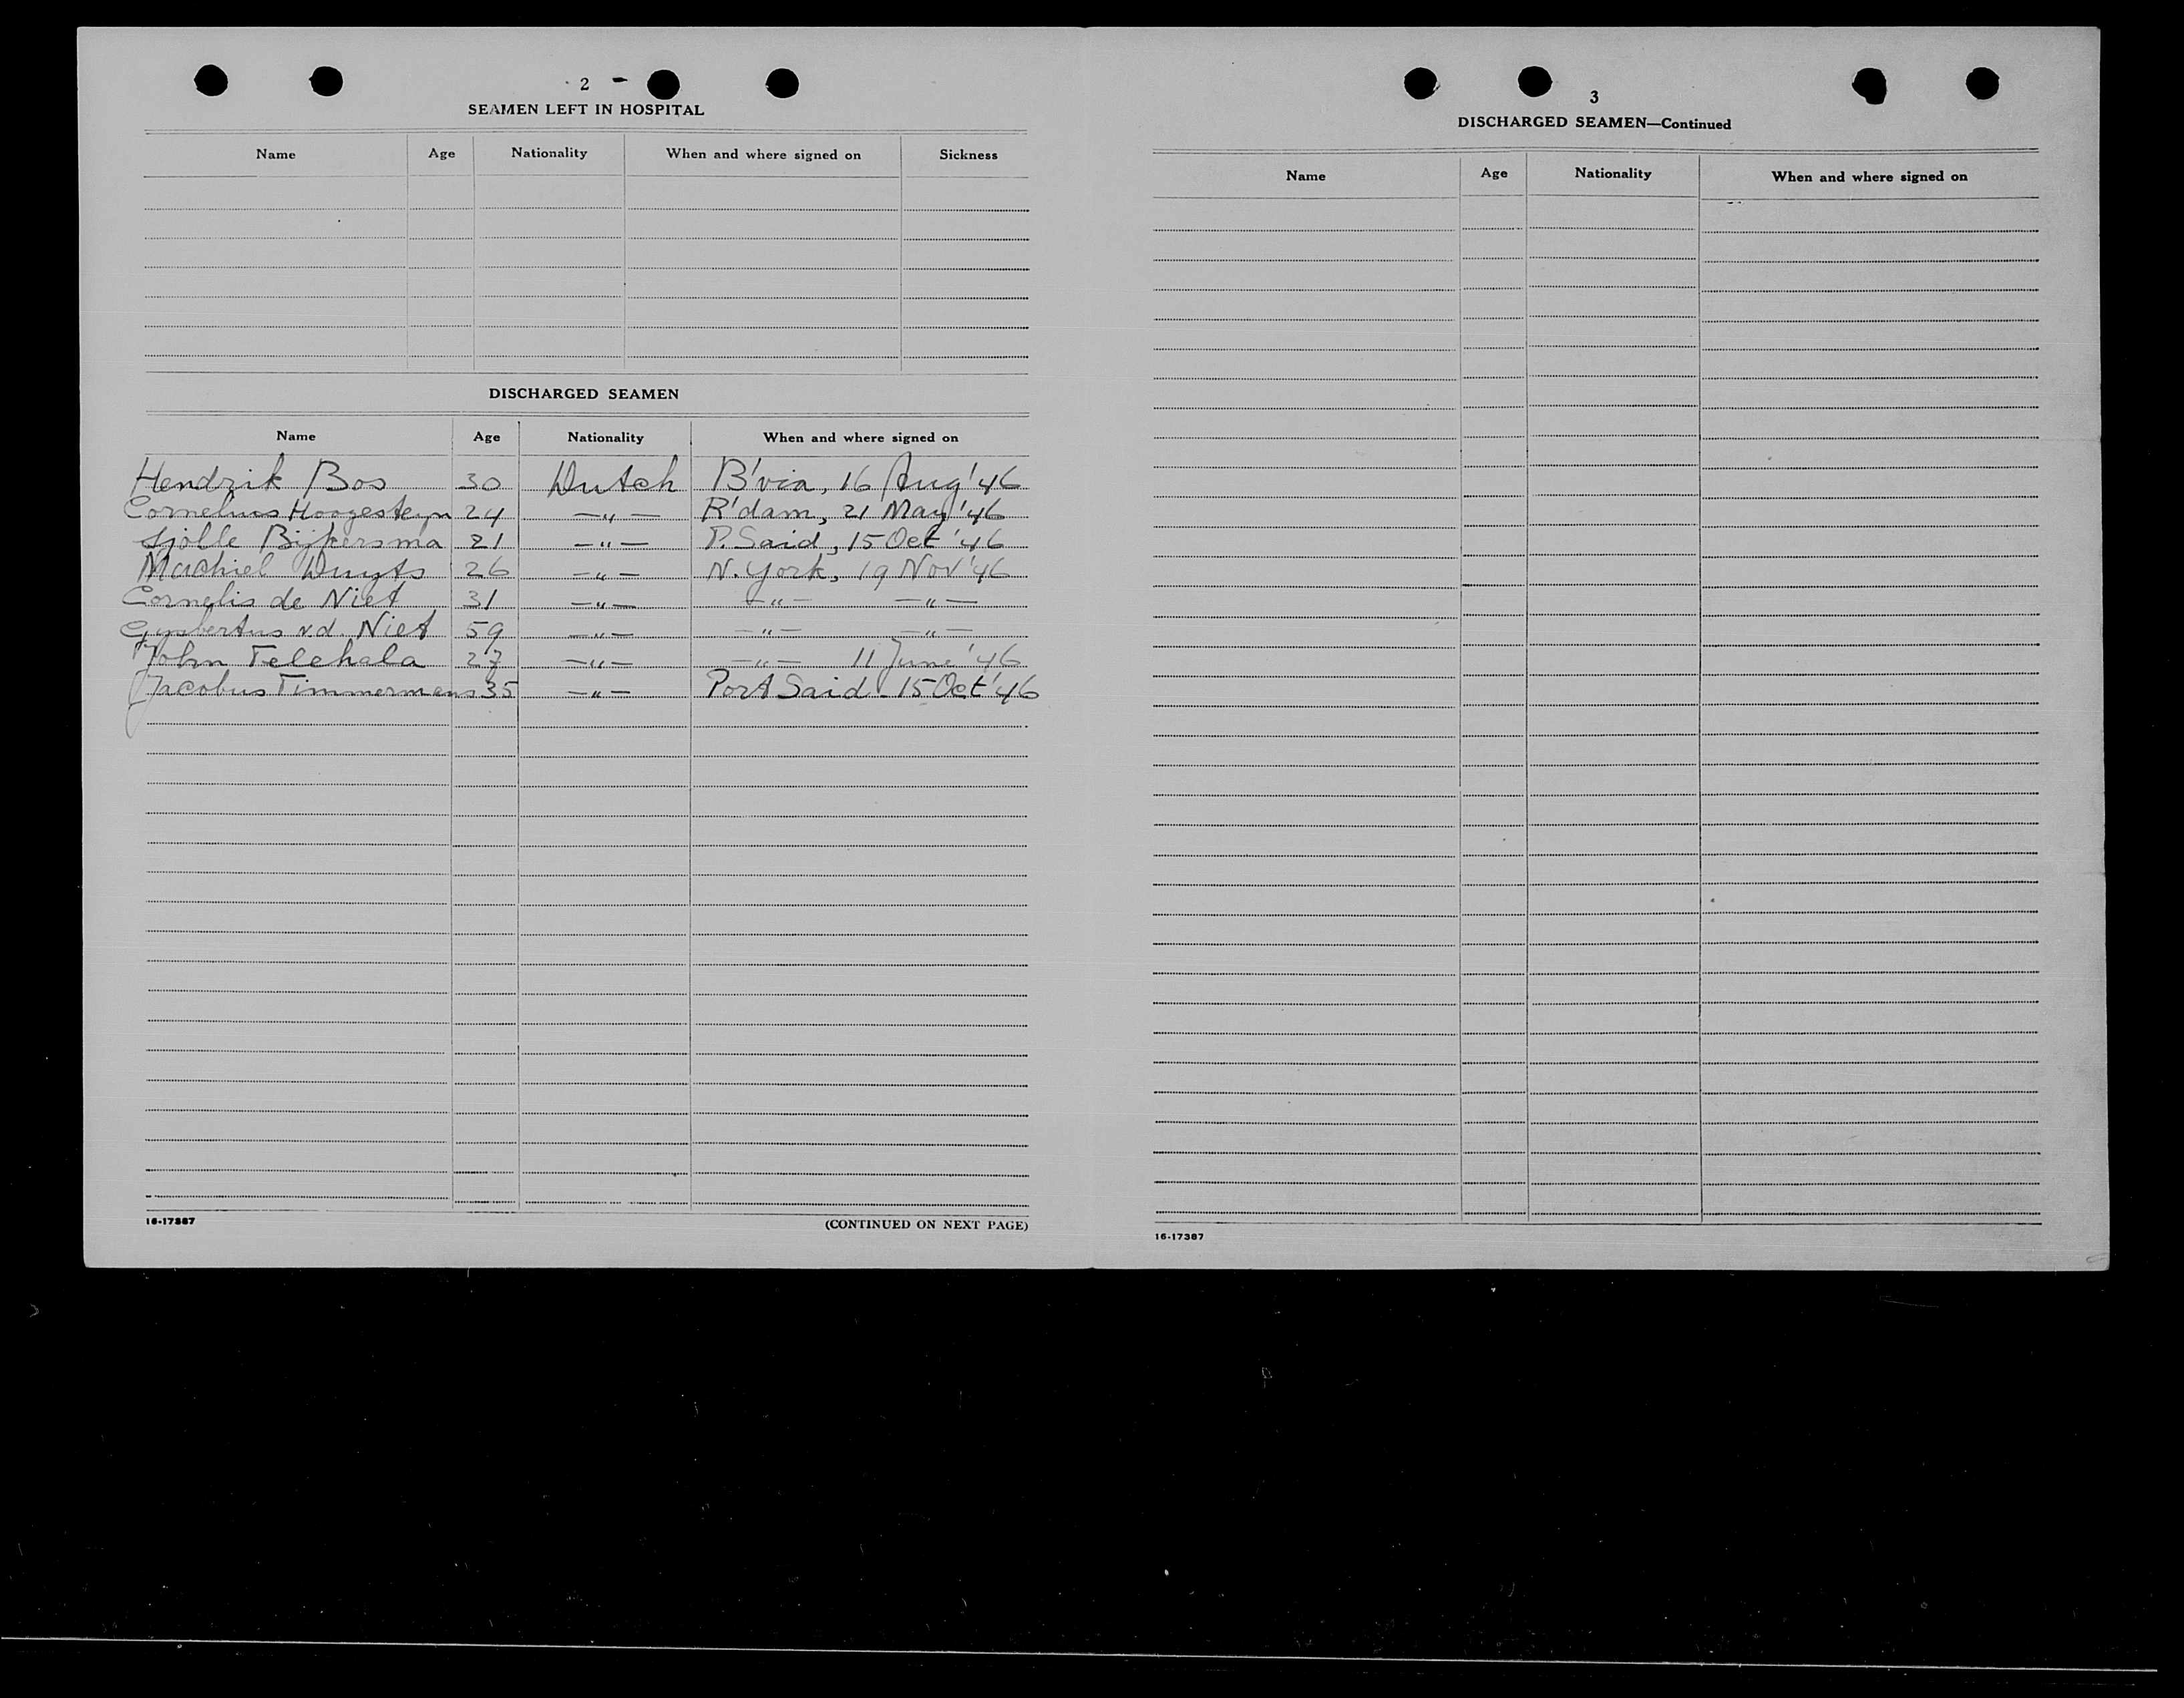 2 -
SEAMEN LEFT IN HOSPITAL
Name Age Nationality When and where signed on Sickness
DISCHARGED SEAMEN
Name Age Nationality When and where signed on
Hendrik Bos 30 Dutch B'via, 16 Aug '46
Cornelius Hoogesteyn 24 —"— R'dam, 21 May '46
Sjolle Bijkersma 21 —"— P. Said, 15 Oct '46
Machiel Duyts 26 —"— N. York, 19 Nov '46
Cornelis de Niet 31 —"— —"— —"—
Gysbertus v.d. Niet 59 —"— —"— —"—
John Telehala 27 —"— —"— 11 June '46
Jacobus Timmermans 35 —"— Port Said - 15 Oct '46
16-17387 (CONTINUED ON NEXT PAGE)
3
DISCHARGED SEAMEN—Continued
Name Age Nationality When and where signed on
16-17387